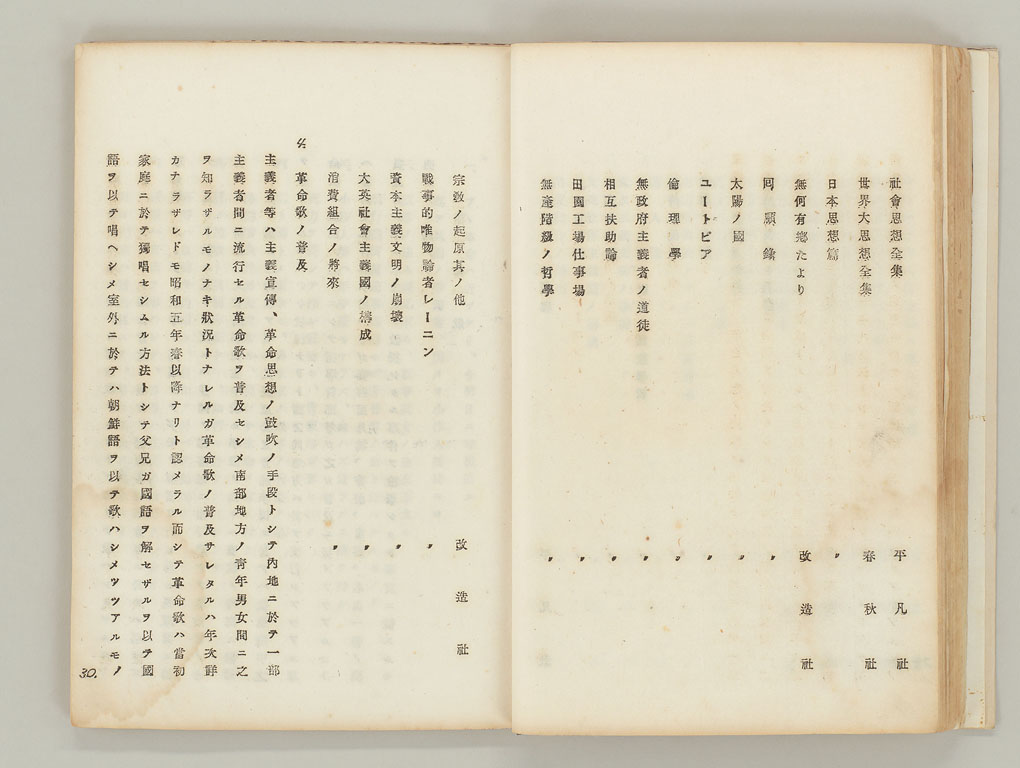 社會思想全集 平凡社
世界大思想全集 春秋社
日本思想篇 〃
無何有鄕たより 改造社
同願錄 〃
太陽ノ國 〃
ユートピア 〃
倫理學 〃
無政府主義者ノ道徒 〃
相互扶助論 〃
田園工場仕事場 〃
無產階級ノ哲學 〃
宗敎ノ起原其ノ他 改造社
戰事的唯物論者レーニン 〃
資本主義文明ノ崩壞 〃
大英社會主義國ノ構成 〃
消費組合ノ將來 〃
革命歌ノ普及
主義者等ハ主義宣傳、革命思想ノ鼓吹ノ手段トシテ內地ニ於テ一部
主義者間ニ流行セル革命歌ヲ普及セシメ南部地方ノ靑年男女間ニ之
ヲ知ラザルモノナキ狀況トナレルガ革命歌ノ普及サレタルハ年次詳
カナラザレドモ昭和五年春以降ナリト認メラル而シテ革命歌ハ當初
家庭ニ於テ獨唱セシムル方法トシテ父兄ガ國語ヲ解セザルヲ以テ國
語ヲ以テ唱ヘシメ室外ニ於テハ朝鮮語ヲ以テ歌ハシメツツアルモノ
30.